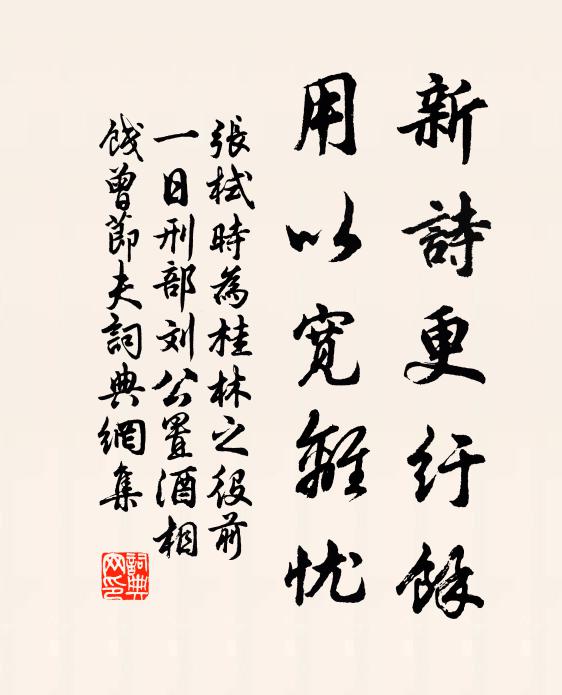 新詩更紆餘
用以寬離忧
張栻時為桂林之役前
一日刑部刘公置酒相
餞曾節夫詞典網集
詞典网印